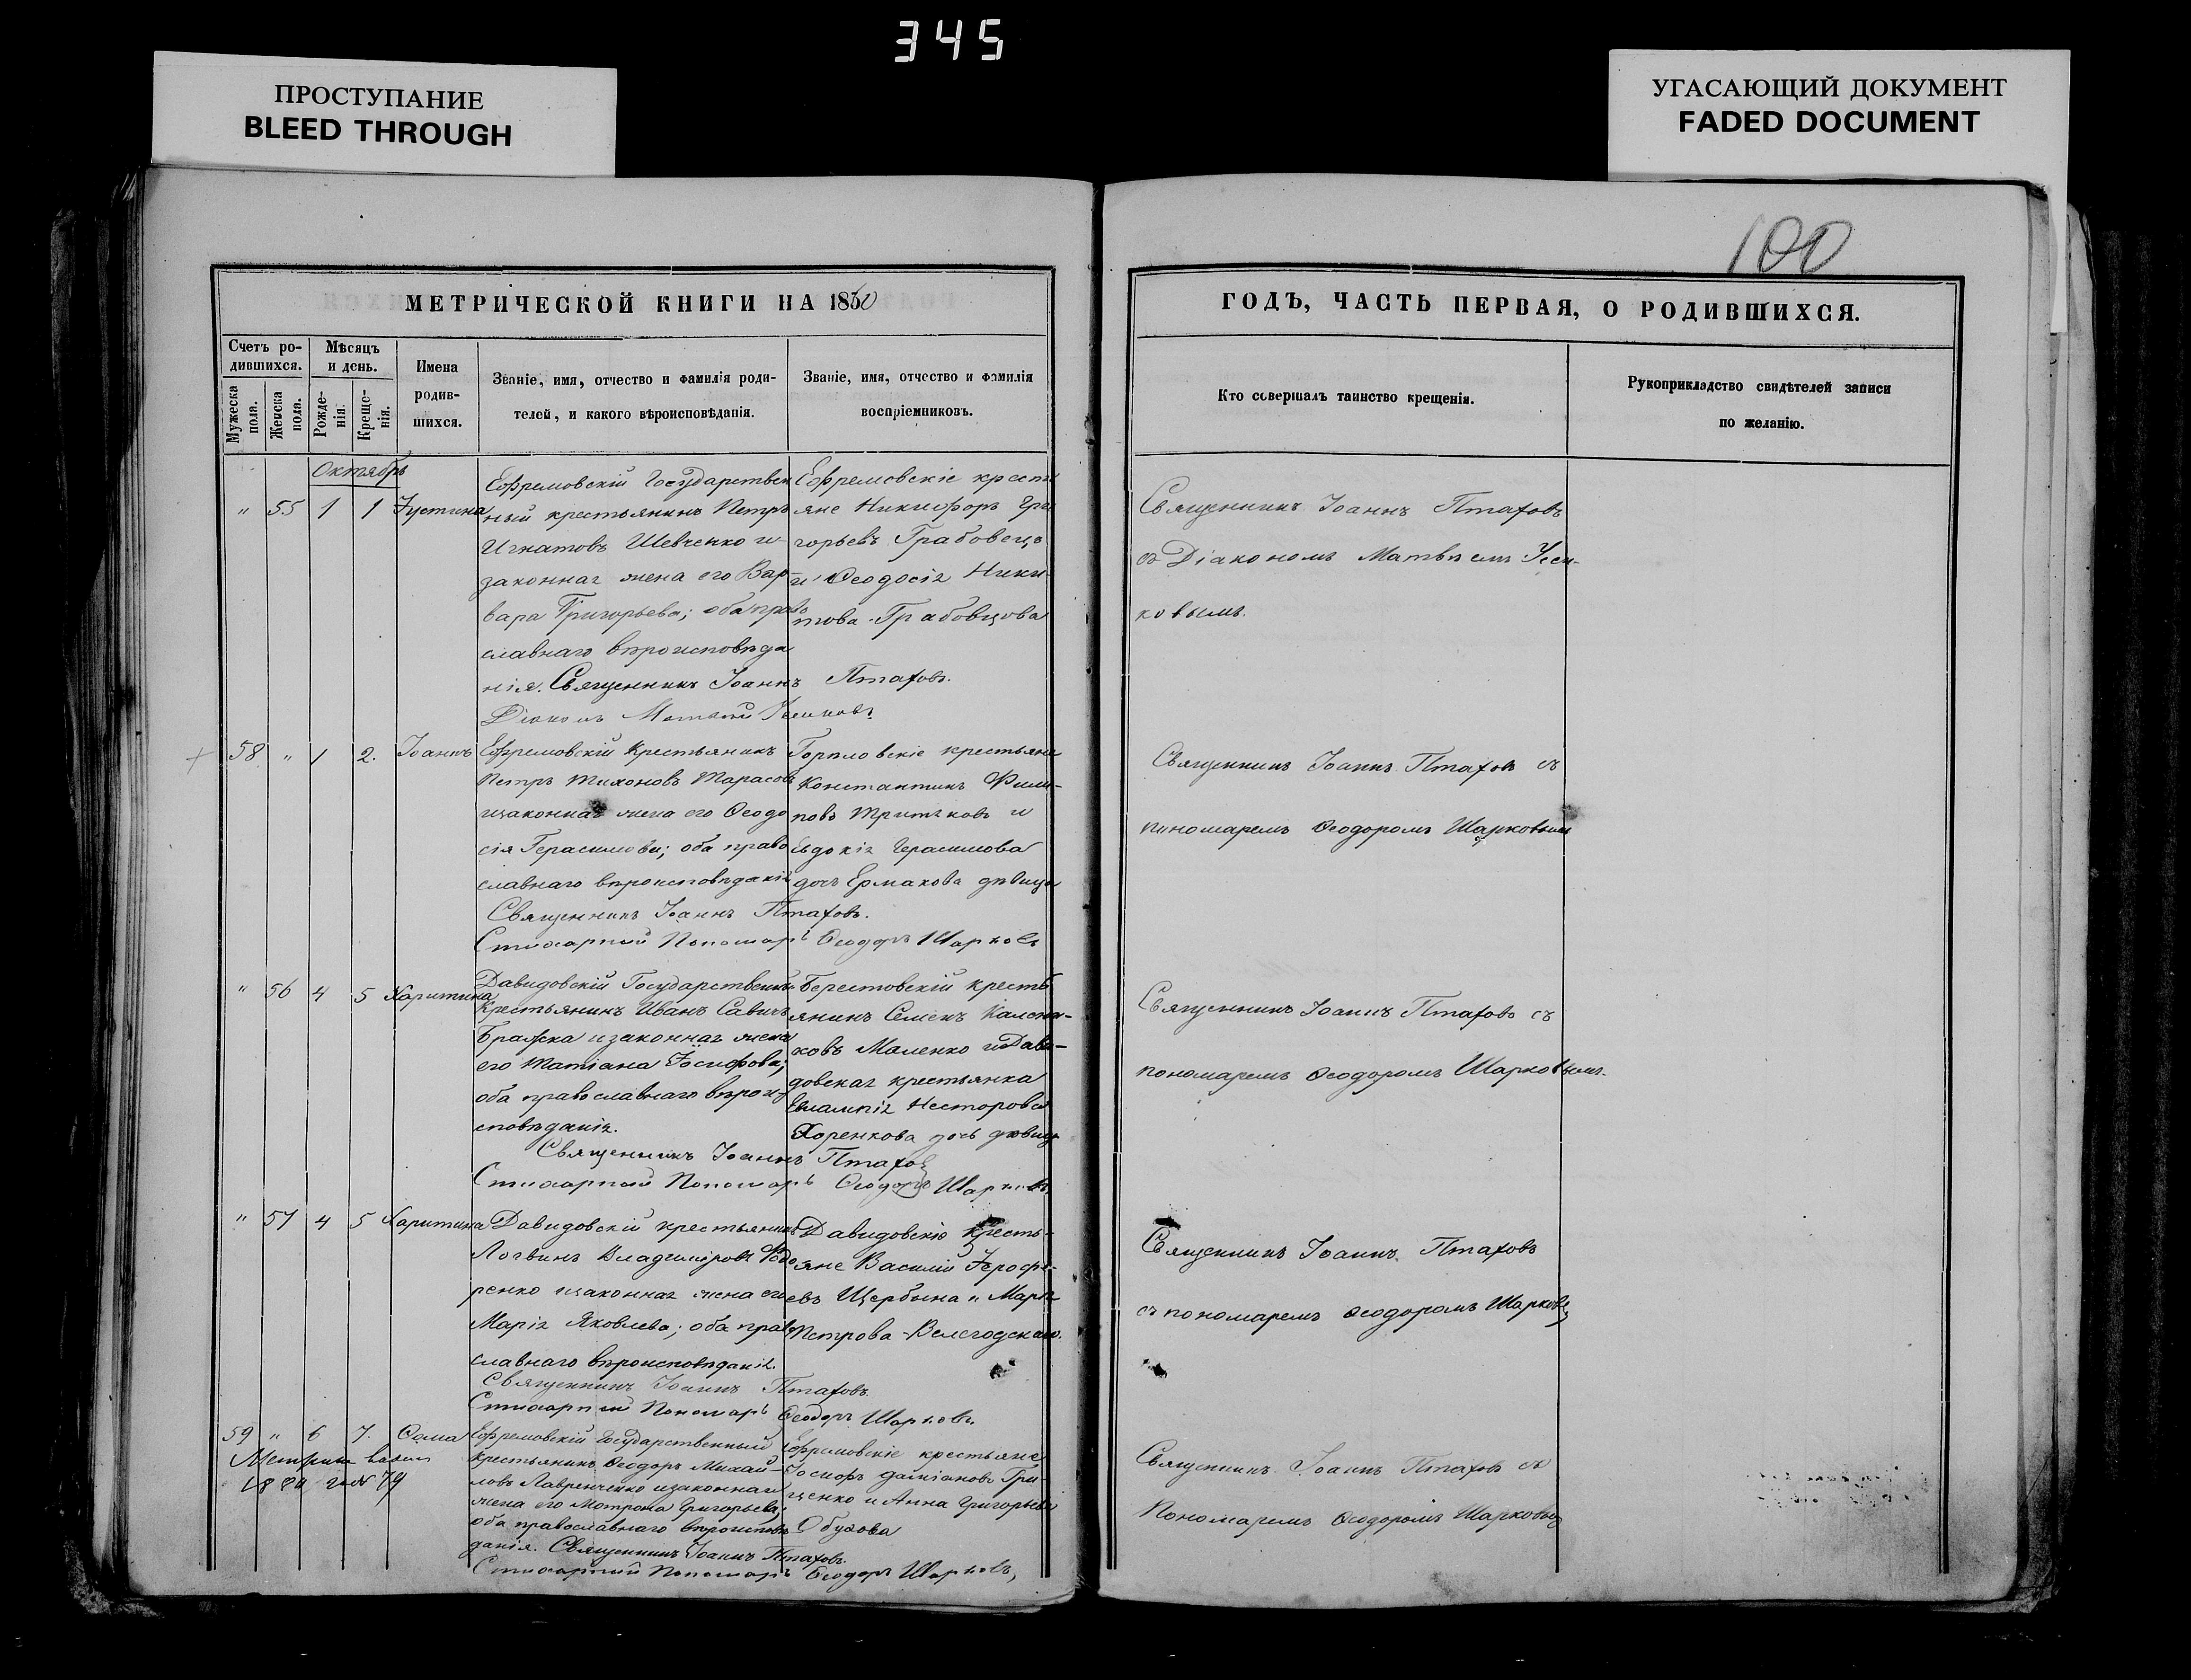 345
ПРОСТУПАНИЕ
BLEED THROUGH
УГАСАЮЩИЙ ДОКУМЕНТ
FADED DOCUMENT
100
МЕТРИЧЕСКОЙ КНИГИ НА 1860
ГОДЪ, ЧАСТЬ ПЕРВАЯ, О РОДИВШИХСЯ.
Счетъ ро-
дившихся.
Мужеска
пола.
Женска
пола.
Мѣсяцъ
и день.
Рожде-
нія.
Креще-
нія.
Имена
родив-
шихся.
Званіе, имя, отчество и фамилія роди-
телей, и какого вѣроисповѣданія.
Званіе, имя, отчество и фамилія
воспріемниковъ.
Кто совершалъ таинство крещенія.
Рукоприкладство свидѣтелей записи
по желанію.
Октябрь
" 55 1 1 Іустина
Ефремовскій Государствен
ный крестьянинъ Петръ
Игнатовъ Шевченко и
законная жена его Вар-
вара Григорьева; оба право
славнаго вѣроисповѣда
нія. Священникъ Іоаннъ Птаховъ.
Діаконъ Матвѣй
Ефремовскіе крестья
яне Никифоръ Гри
горьевъ Грабовецъ
и Ѳеодосія Ники
това Грабовцова
Священникъ Іоаннъ Птаховъ
съ Діакономъ Матвѣемъ Уси-
ковымъ.
58 " 1 2. Іоаннъ
Ефремовскій Крестьянинъ
Петръ Тихоновъ Тарасовъ
изаконная жена его Ѳеодо
сія Герасимова; оба право
славнаго вѣроисповѣданія
Священникъ Іоаннъ Птаховъ.
Стихарный Пономарь Ѳеодоръ Шарковъ
крестьяне
Константинъ Фили-
повъ и
Евдокія Герасимова
дочь Ермакова дѣвица
Священникъ Іоаннъ Птаховъ съ
пономаремъ Ѳеодоромъ Шарковымъ
" 56 4 5 Харитина
Давидовскій Государственный
Крестьянинъ Иванъ Савичъ
Бражка изаконная жена
его Татіана Іосифова;
оба православнаго вѣрои-
сповѣданія.
Священникъ Іоаннъ Птаховъ
Стихарный Пономарь Ѳеодоръ Шарковъ
Берестовскій кресть
янинъ Семенъ Калени-
ковъ Маленко и Дави-
довская крестьянка
Евлампія Несторова
Хоренкова дочь дѣвица
Священникъ Іоаннъ Птаховъ съ
пономаремъ Ѳеодоромъ Шарковымъ.
" 57 4 5 Харитина
Давидовскій крестьянинъ
Логвинъ Владиміровъ Ѳедо
ренко изаконная жена его
Марія Яковлева; оба право
славнаго вѣроисповѣданія.
Священникъ Іоаннъ Птаховъ
Стихарный Пономарь Ѳеодоръ Шарковъ
Давидовскіе кресть-
яне Василій Ерофе-
евъ Щербина и Марія
Петрова
Священникъ Іоаннъ Птаховъ
съ пономаремъ Ѳеодоромъ Шарковы
59 " 6 7. Ѳома
Метрика
79
Ефремовскій Государственный
крестьянинъ Ѳеодоръ Михай-
ловъ Лавренченко изаконная
жена его Мотрона Григорьева;
оба православнаго вѣроисповѣ
данія. Священникъ Іоаннъ Птаховъ.
Стихарный Пономарь Ѳеодоръ Шарковъ,
Ефремовскіе крестьяне
Іосифъ Даміановъ Гри-
щенко и Анна Григорьева
Обухова
Священникъ Іоаннъ Птаховъ съ
Пономаремъ Ѳеодоромъ Шарковы